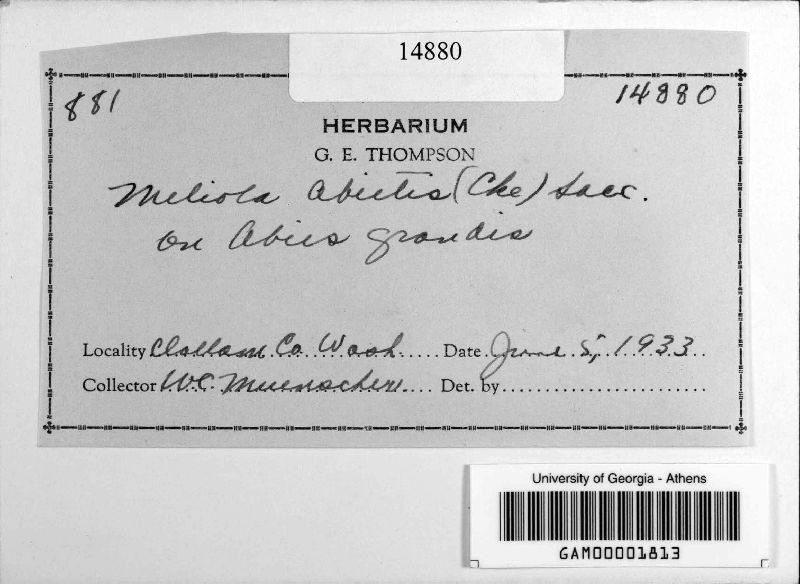 14880
881 14880
HERBARIUM
G. E. THOMPSON
Meliola Abietis (Cke) Sacc.
on Abies grandis
Locality Clallam Co. Wash. Date June 5, 1933
Collector W.C. Muenscher Det. by
University of Georgia - Athens
GAM00001813